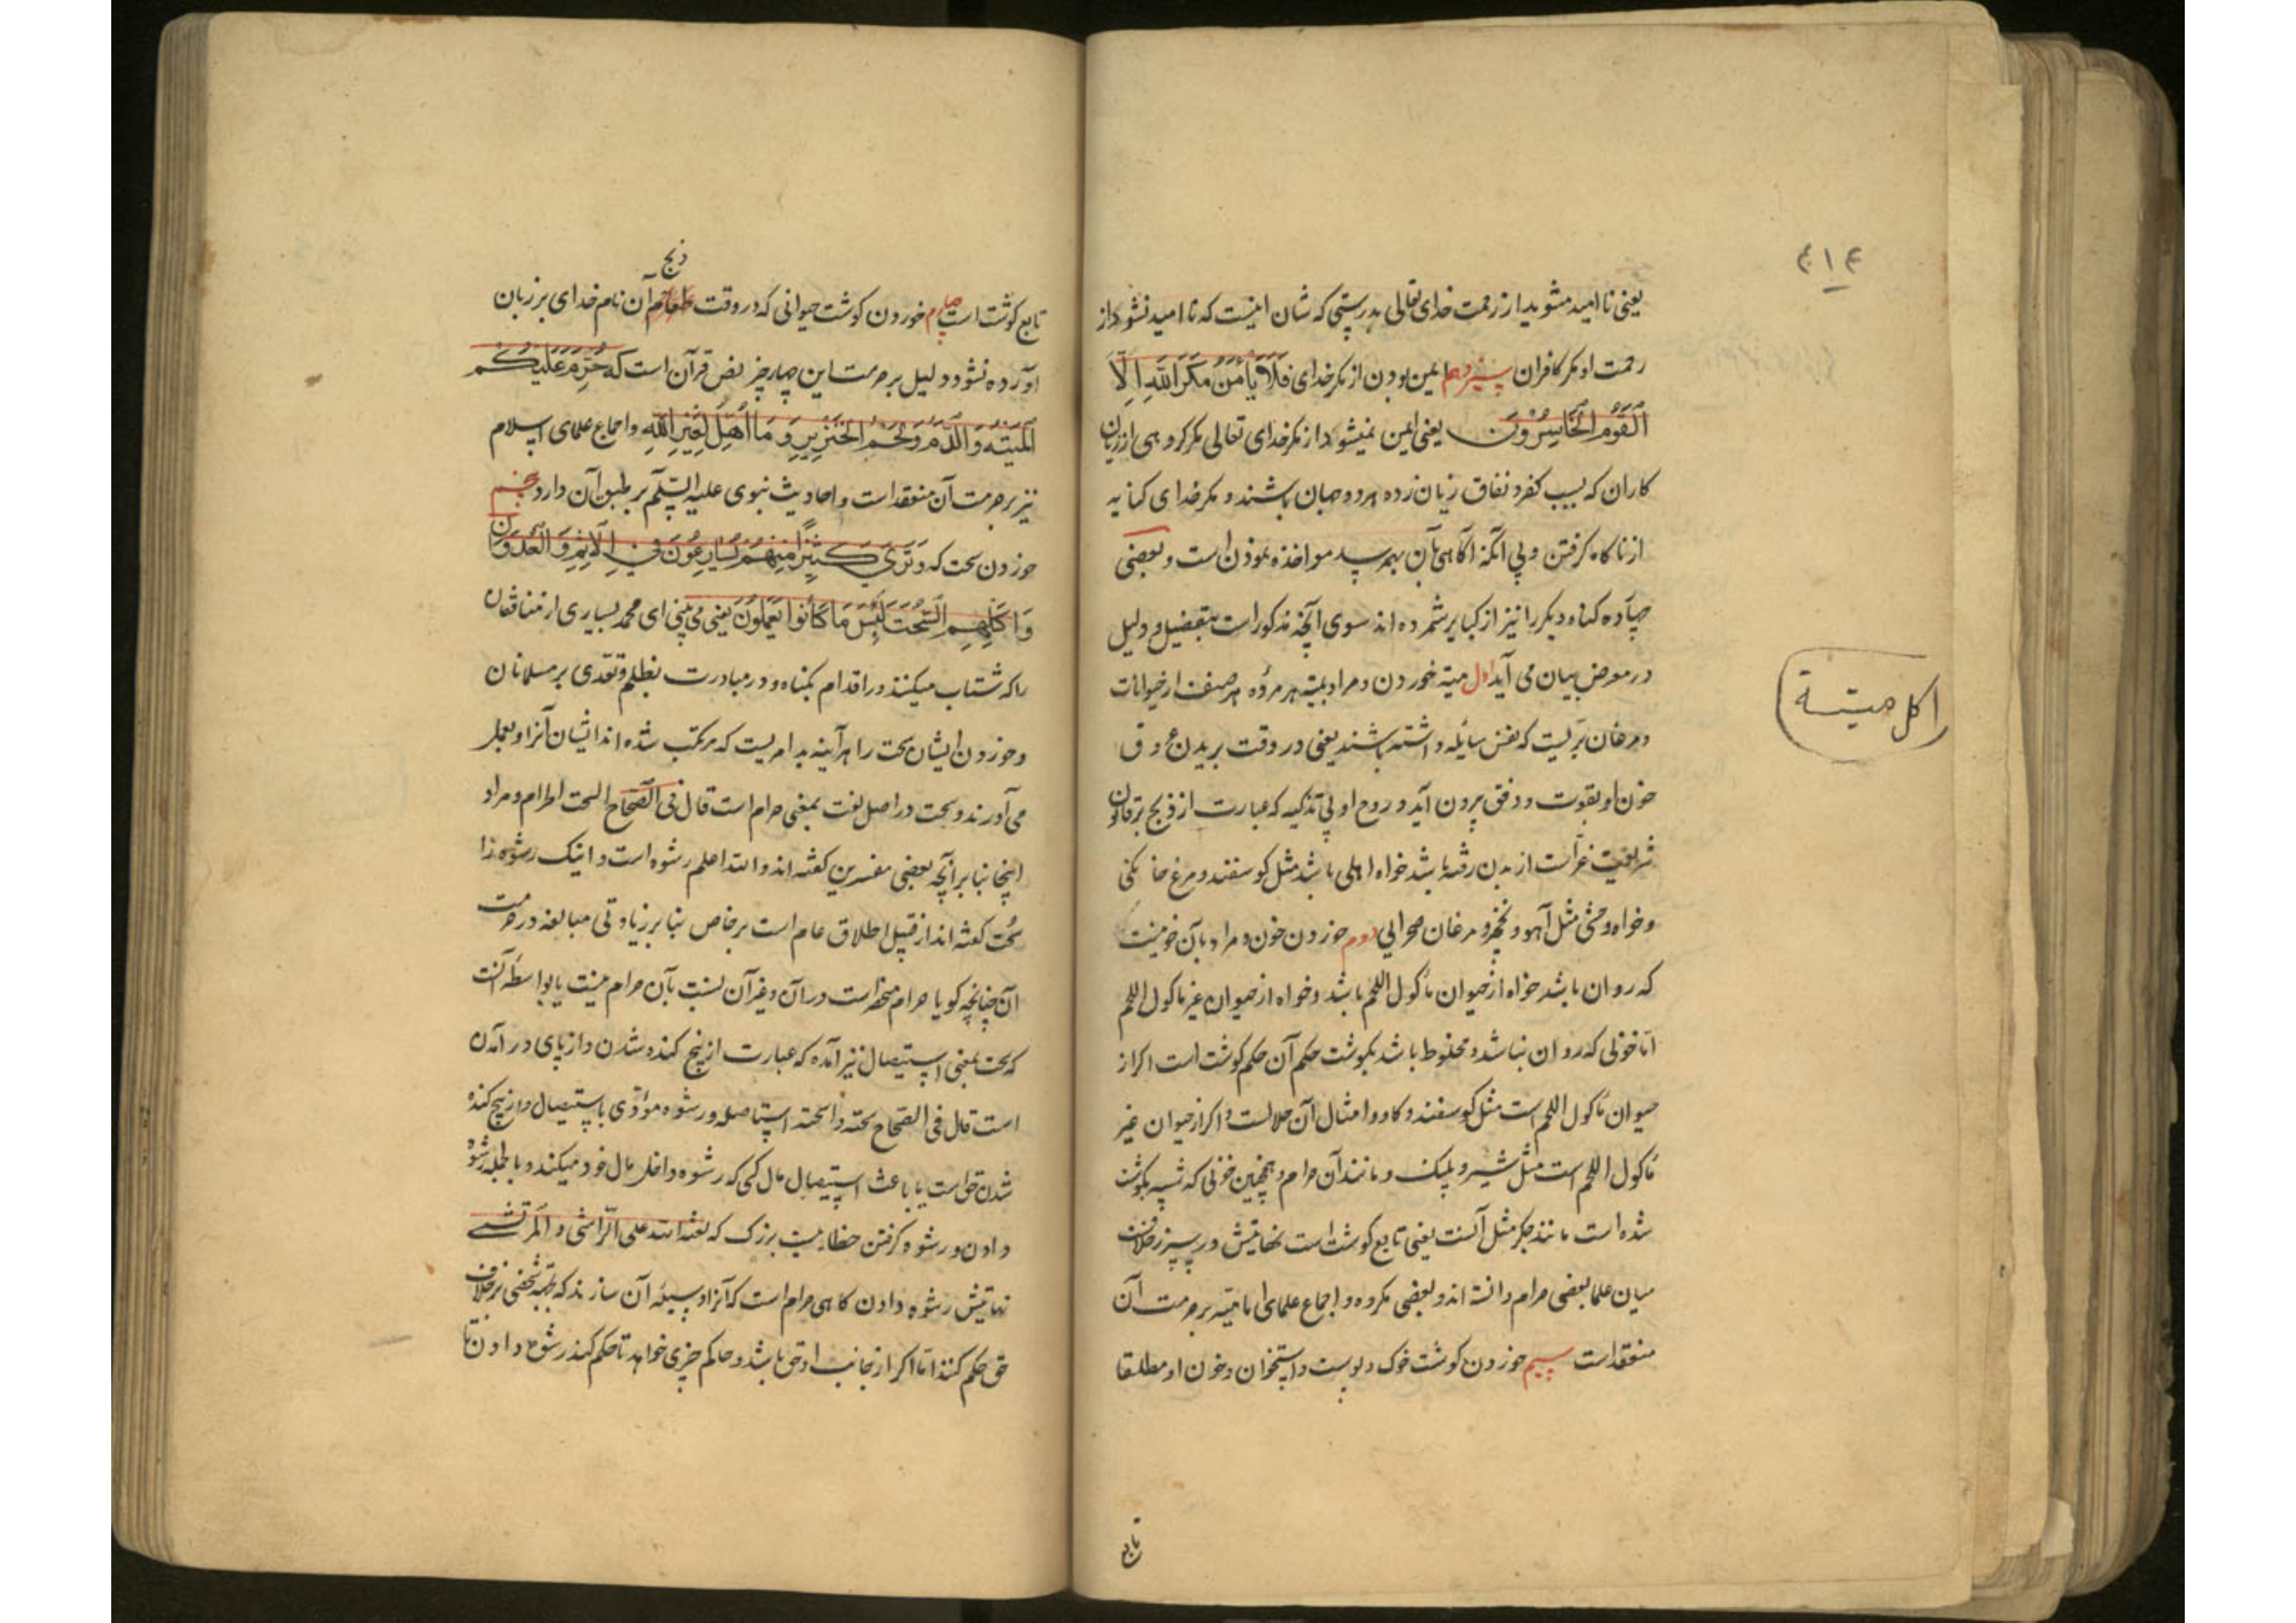 ۴۱۴
یعنی نا امید مشوید از رحمت خدای تعالی بدرستی که شان اینست که نا امید نشود از
رحمت او مکر کافران سیزدهم ایمن بودن از مکر خدای فَلَا یَأمَنُ مَکرَ اللّهِ اِلَّا
القَومُ الخَاسِرُونَ یعنی ایمن نمیشود از مکر خدای تعالی مکر کروهی از زیان
کاران که بسبب کفر و نفاق زیان زده هر دو جهان باشند و مکر خدای کنایه
از ناکاه کرفتن و بی آنکه آکاهی بآن بهم رسد مواخذه نمودن است و بعضی
چهارده کناه دیکر را نیز از کبایر شمرده اند سوی آنچه مذکور است بتفصیل و دلیل
در معرض بیان می آید اول میته خوردن و مراد بمیته هر مرده هر صنف از حیوانات
و مرغان بریست که نفس سائله داشته باشند یعنی در وقت بریدن عروق
خون او بقوت و دفق بیرون آید و روح او بی تذکیه که عبارت از ذبح بر قانون
شریعت غراست از بدن رفته باشد خواه اهلی باشد مثل کوسفند و مرغ خانکی
و خواه وحشی مثل آهو و نخچیر و مرغان صحرایی دوم خوردن خون و مراد بآن خونیست
که روان باشد خواه از حیوان مأکول اللحم باشد و خواه از حیوان غیر مأکول اللحم
اما خونی که روان نباشد و مخلوط باشد بکوشت حکم آن حکم کوشت است اکر از
حیوان مأکول اللحم است مثل کوسفند و کاو و امثال آن حلالست و اکر از حیوان غیر
مأکول اللحم است مثل شیر و پلنک و مانند آن حرام و همچنین خونی که شبیه بکوشت
شده است مانند جکر مثل آنست یعنی تابع کوشت است نهایتش در سپرز خلافست
میان علما بعضی حرام دانسته اند و بعضی مکروه و اجماع علمای امامیه بر حرمت آن
منعقد است سیم خوردن کوشت خوک و پوست و استخوان و خون او مطلقا
تابع
اکل میتة
ذبح
تابع کوشت است چهارم خوردن کوشت حیوانی که در وقت طعام آن نام خدای بر زبان
آورده نشود و دلیل بر حرمت این چهار چیز نص قرآن است که حُرِّمَ عَلَیکُم
المَیتَةُ وَ الدَّمُ وَ لَحمُ الخِنزِیرِ وَ مَا اُهِلَّ لِغَیرِ اللهِ و اجماع علمای اسلام
نیز بر حرمت آن منعقد است و احادیث نبوی علیه السلم بر طبق آن دارد پنجم
خوردن سحت که وَ تَرَی کَثِیرًا مِنهُم یُسَارِعُونَ فِی الاِثمِ وَ العُدوَانِ
وَ اَکلِهِمُ السُّحتَ لَبِئسَ مَا کَانُوا یَعمَلُونَ یعنی می بینی ای محمد بسیاری از منافقان
را که شتاب میکنند در اقدام بکناه و در مبادرت بظلم و تعدی بر مسلمانان
و خوردن ایشان سحت را هر آینه بد امریست که مرتکب شده اند ایشان آنرا و بعمل
می آورند و سحت در اصل لغت بمعنی حرام است قال فی الصحاح السحت الحرام و مراد
اینجا بنا بر آنچه بعضی مفسرین کفته اند و الله اعلم رشوه است و اینک رشوه را
سُحت کفته اند از قبیل اطلاق عام است بر خاص بنا بر زیادتی مبالغه در حرمت
آن چنانچه کویا حرام منحصر است در آن و غیر آن نسبت بآن حرام نیست یا بواسطه آنست
که سحت بمعنی استیصال نیز آمده که عبارت از بیخ کنده شدن و از پای در آمدن
است قال فی الصحاح سحته و اسحته استاصله و رشوه مؤدی باستیصال و از بیخ کنده
شدن حق است یا باعث استیصال مال کسی که رشوه داخل مال خود میکند و بالجمله رشوه
دادن و رشوه کرفتن خطاییست بزرک که لعنة الله علی الراشی و المرتشی
نهایتش رشوه دادن کاهی حرام است که آنرا وسیله آن سازند که بجهة شخصی بر خلاف
حق حکم کنند اما اکر از جانب او حق باشد و حاکم چیزی خواهد تا حکم کند رشوه دادن تا